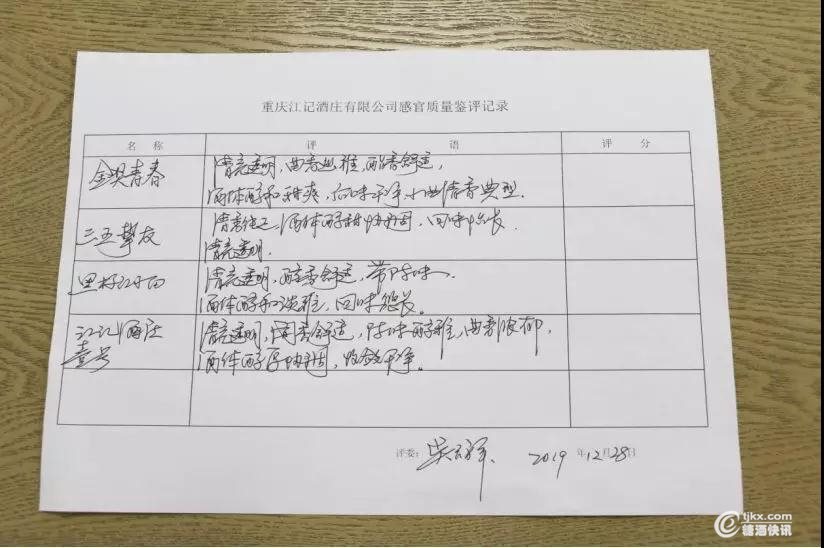 重庆江记酒庄有限公司感官质量鉴评记录
名 称 评 语 评 分
金奖青春 清亮透明，曲香幽雅，醇香舒适，
酒体醇和甜爽，后味干净，小曲清香典型。
三五挚友 清香纯正，酒体醇甜协调，回味悠长
清亮透明。
里好江小白 清亮透明，醇香舒适，带陈味，
酒体醇和淡雅，回味悠长。
江记酒庄 清亮透明，闻香舒适，陈味醇雅，曲香浓郁，
壹号 酒体醇厚协调，收敛干净。
评委： 2019 年 12 月 28 日
tjkx.com
糖酒快讯